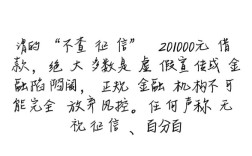 谓的 “不查征信” 201000元 借
款，绝大多数是虚假宣传或金
融陷阱阔，正规金融机构不可
能完全放弃风控。任何声称 无
视征信、百分百